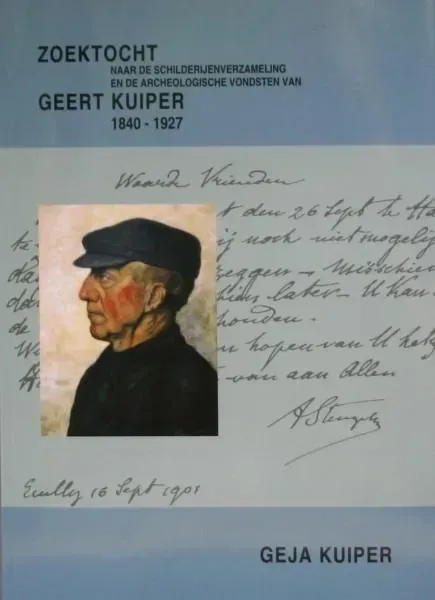 ZOEKTOCHT
NAAR DE SCHILDERIJENVERZAMELING
EN DE ARCHEOLOGISCHE VONDSTEN VAN
GEERT KUIPER
1840 - 1927
Waarde Vrienden
t den 26 Sept te Ha
te ij noch niet mogelij
da zeggen - misschien
da chien later - U kan
de houden.
W n hopen van U
van aan Allen
16 Sept 1901
GEJA KUIPER